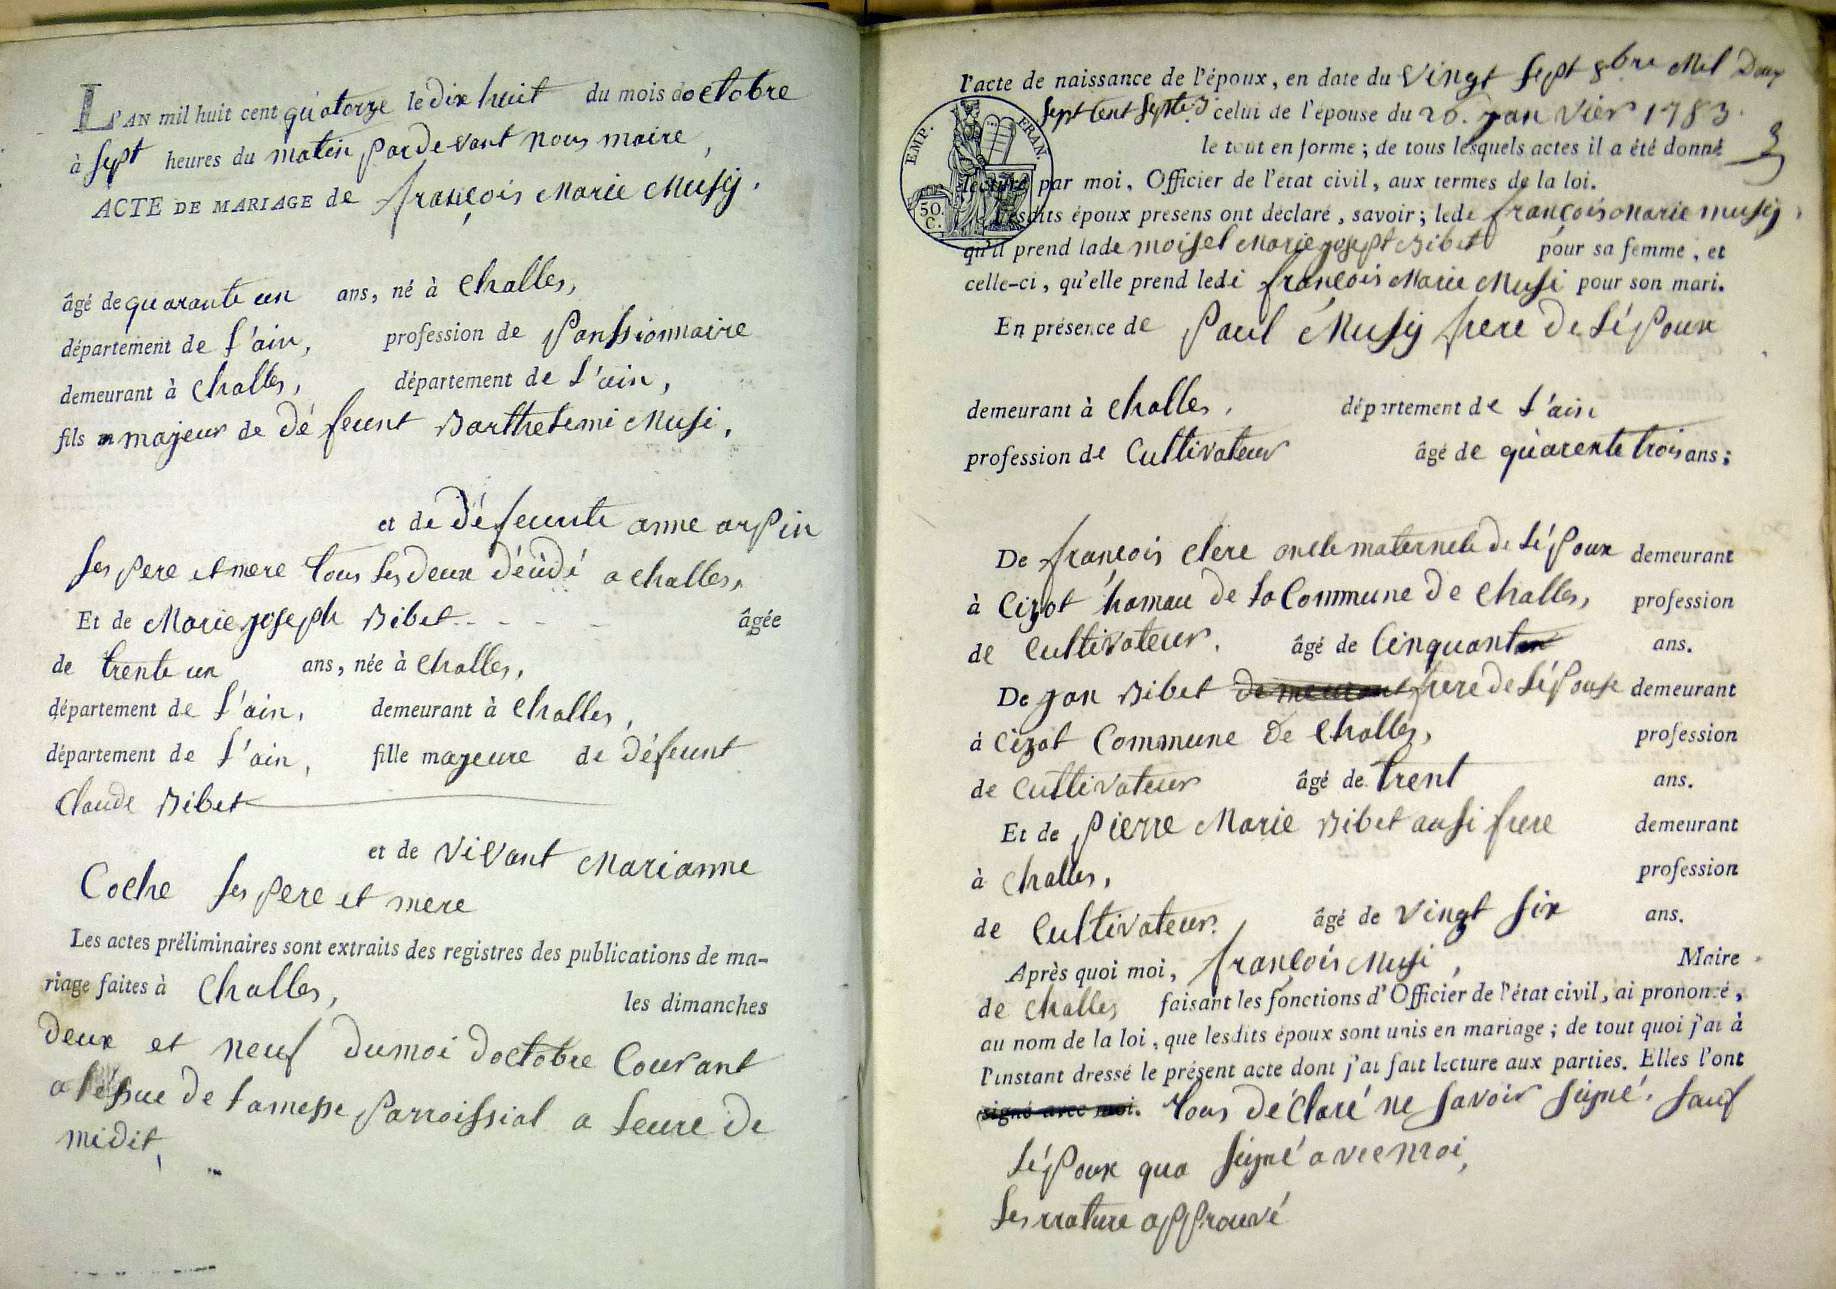 L'AN mil huit cent quatorze le dix huit du mois doctobre
à sept heures du matin pardevant nous maire,
ACTE DE MARIAGE de françois Marie Musy.
âgé de quarante un ans, né à Challes,
département de l'ain, profession de panssionnaire
demeurant à Challes, département de l'ain,
fils majeur de défeunt Barthelemi Musi,
et de défeunte anne arpin
ses pere et mere tous les deux décédé a Challes,
Et de Marie joseph Bibet - - - - âgée
de trente un ans, née à Challes,
département de l'ain, demeurant à Challes,
département de l'ain, fille majeure de défeunt
Claude Bibet
et de vivant Marianne
Coche ses pere et mere
Les actes préliminaires sont extraits des registres des publications de ma-
riage faites à Challes, les dimanches
deux et neuf du moi doctobre Courant
a l'essue de la messe parroissial a leure de
midit,
l'acte de naissance de l'époux, en date du vingt sept 8bre Mil
sept Cent septe 3 celui de l'épouse du 26. janvier 1783.
le tout en forme; de tous lesquels actes il a été donné
lecture par moi, Officier de l'état civil, aux termes de la loi.
Lesdits époux présens ont déclaré, savoir; lede françois marie musy,
qu'il prend lade moisel Marie joseph Bibet pour sa femme, et
celle-ci, qu'elle prend ledi françois Marie Musi pour son mari.
En présence de Paul Musy frere de Lépoux
demeurant à Challes, département de l'ain
profession de Cultivateur âgé de quarente trois ans;
De françois Clere oncle maternele de Lépoux demeurant
à Cizot hamau de la Commune de Challes, profession
de Cultivateur. âgé de Cinquant ans.
De jan Bibet demeurant frere de Lépouse demeurant
à Cizot Commune de Challes, profession
de Cultivateur âgé de trent ans.
Et de Pierre Marie Bibet ausi frere demeurant
à Challes, profession
de Cultivateur. âgé de vingt six ans.
Après quoi moi, françois Musi, Maire
de Challes faisant les fonctions d'Officier de l'état civil, ai prononcé,
au nom de la loi, que lesdits époux sont unis en mariage; de tout quoi j'ai à
l'instant dressé le présent acte dont j'ai fait lecture aux parties. Elles l'ont
signé avec moi. tous déclaré ne savoir seigné. sauf
Lépoux qua seigné avec moi,
Les rrature approuvé
EMP. FRAN.
50.
C.